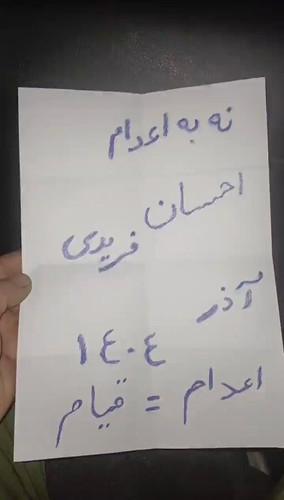 نه به اعدام
احسان فریدی
آذر
١٤٠٤
اعدام = قیام